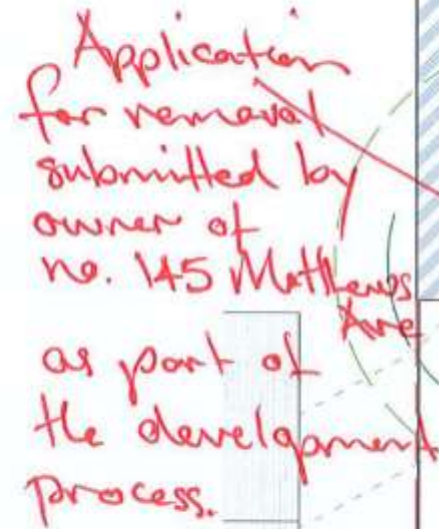 Application
for removal
submitted by
owner of
no. 145 Matthews
Ave
as part of
the development
process.